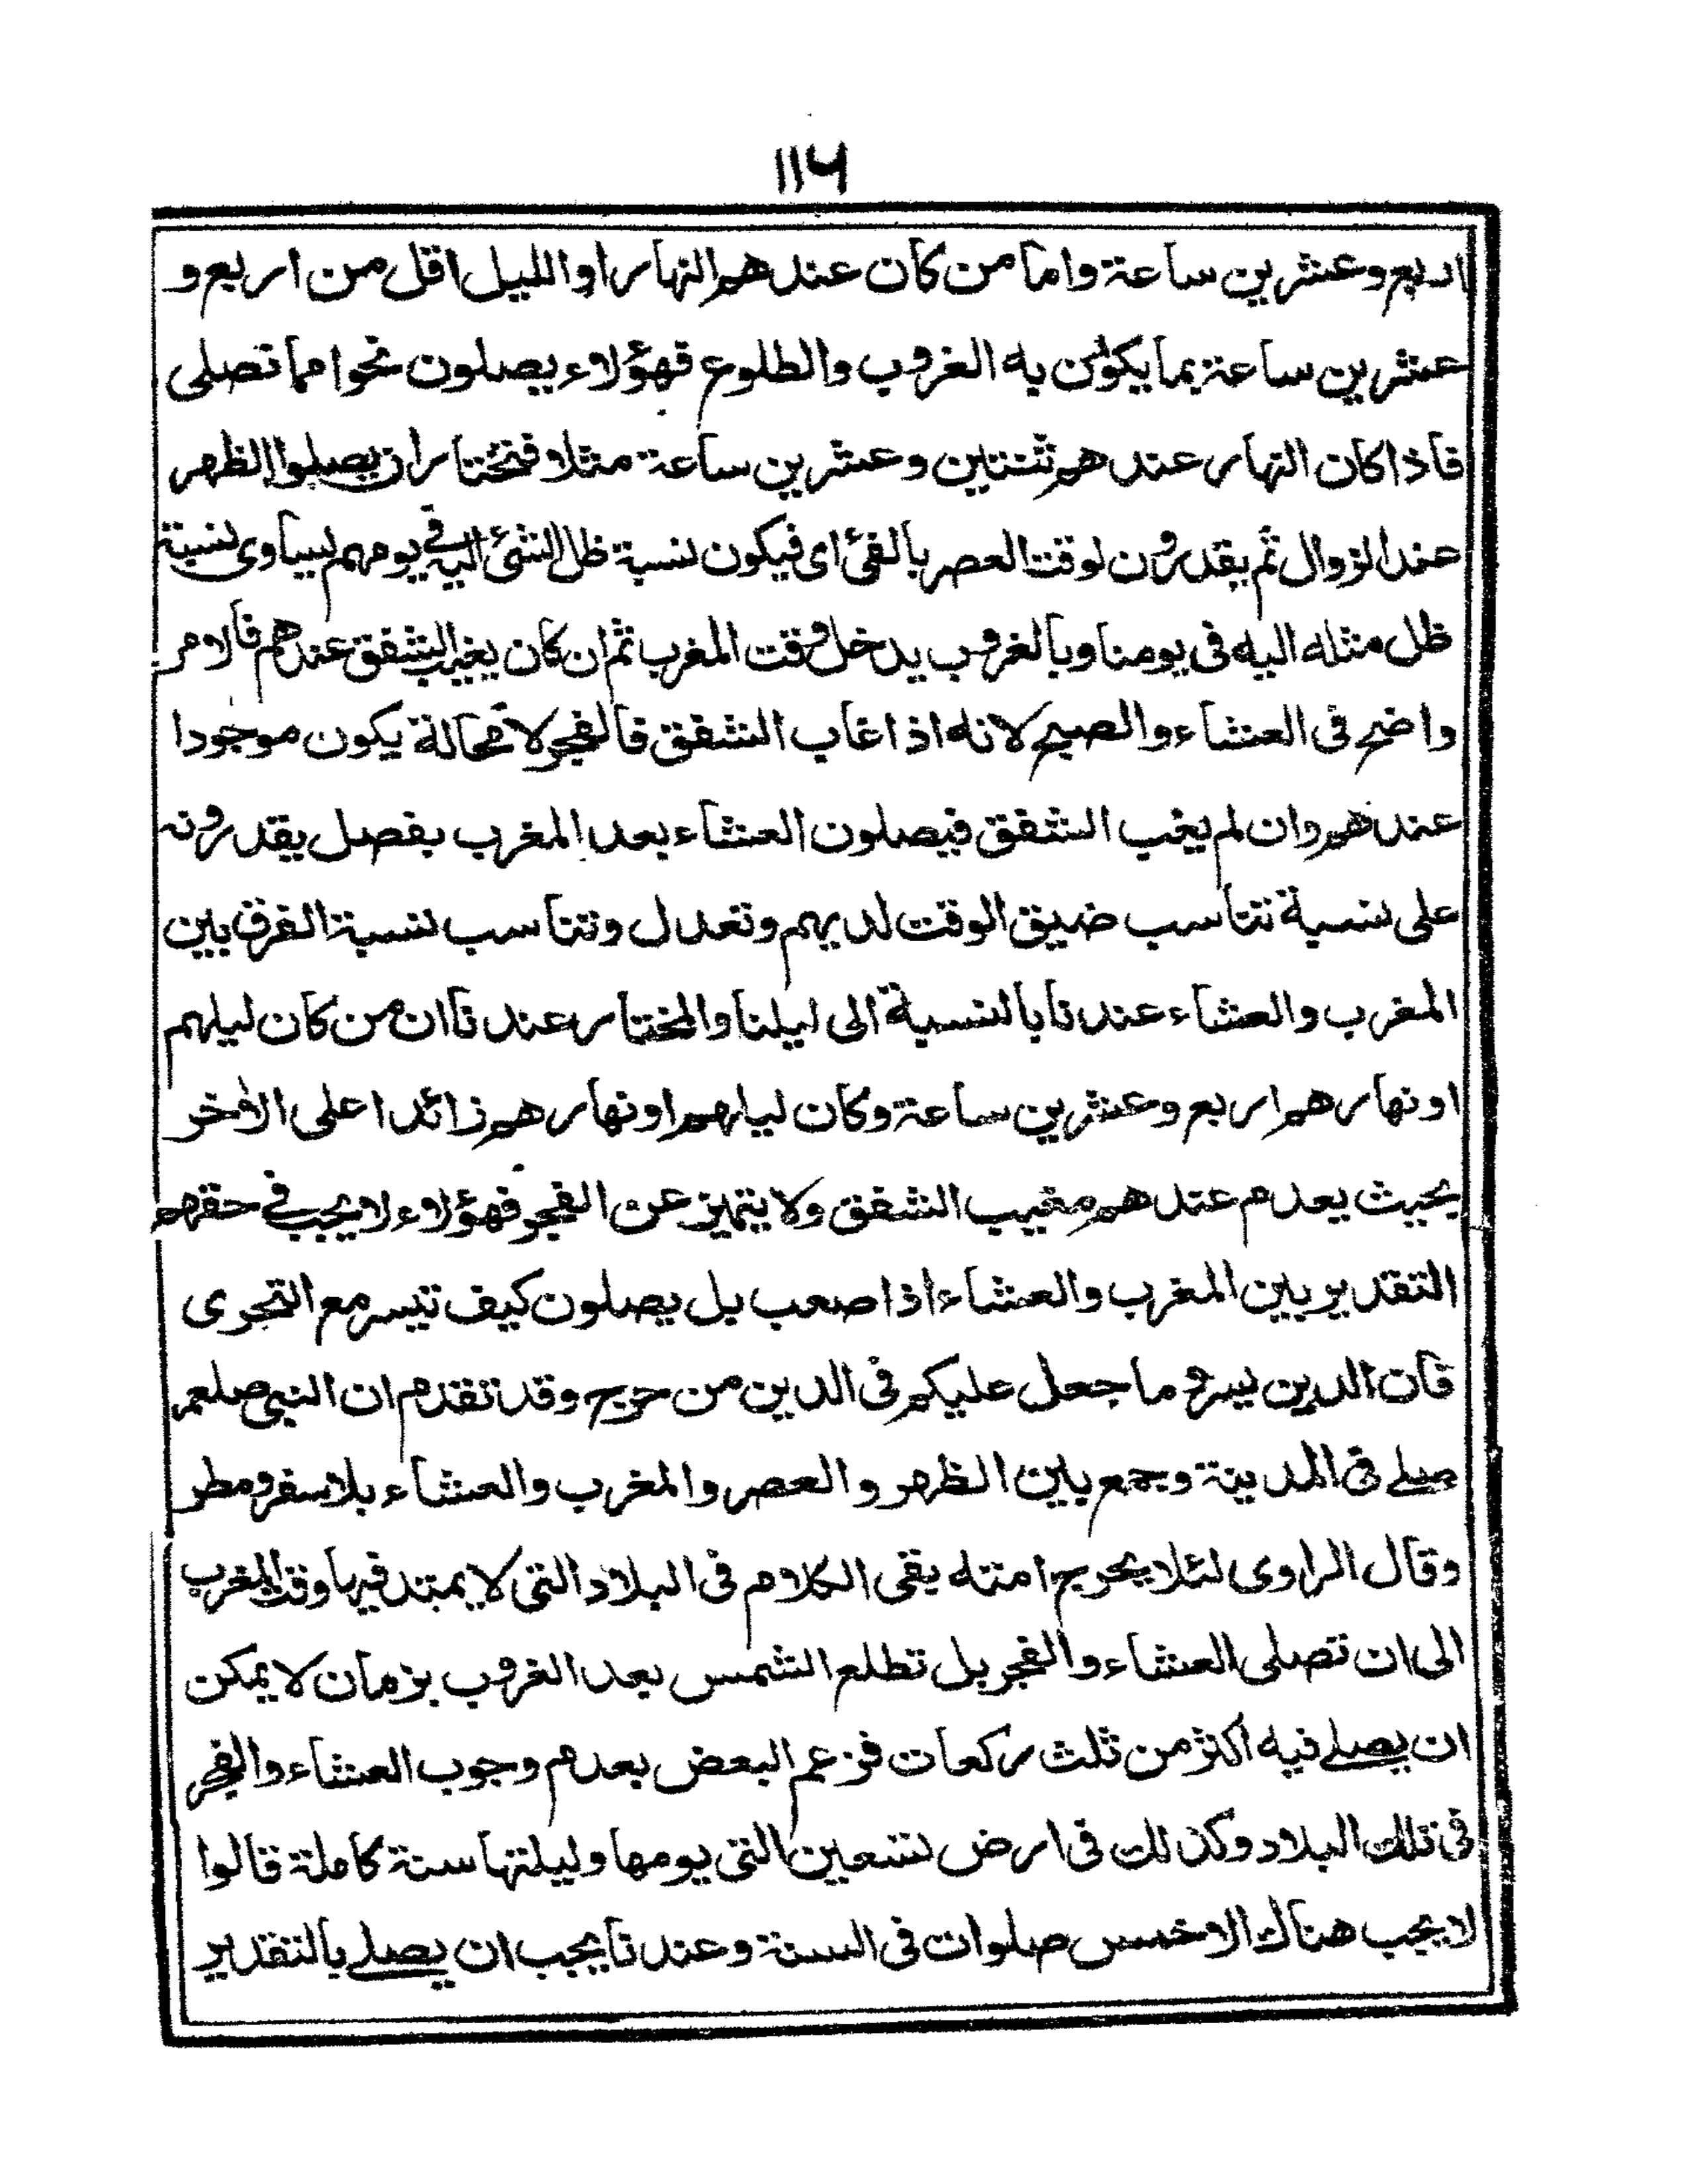 ١١٦
اربع وعشرين ساعة واما من كان عندهم النهار او الليل اقل من اربع و
عشرين ساعة بما يكون به الغروب والطلوع فهؤلاء يصلون نحوا مما تصلى
فاذا كان النهار عندهم ثنتين وعشرين ساعة مثلا فنختار ان يصلوا الظهر
عند الزوال ثم يقدرون لوقت العصر بالفئ اى فيكون نسبة ظل الشئ اليه فى يومهم ليساوى نسبة
ظل مثله اليه فى يومنا وبالغروب يدخل وقت المغرب ثم ان كان يغيب الشفق عندهم فالامر
واضح فى العشاء والصبح لانه اذا غاب الشفق فالفجر لا محالة يكون موجودا
عندهم وان لم يغب الشفق فيصلون العشاء بعد المغرب بفصل يقدرونه
على نسبة تتاسب ضيق الوقت لديهم وتعدل وتناسب نسبة الفرق بين
المغرب والعشاء عندنا بالنسبة الى ليلنا والمختار عندنا ان من كان ليلهم
او نهارهم اربع وعشرين ساعة وكان ليلهم او نهارهم زائدا على الأخر
بحيث يعدم عندهم مغيب الشفق ولا يتميز عن الفجر فهؤلاء لا يجب فى حقهم
التقدير بين المغرب والعشاء اذا صعب بل يصلون كيف تيسر مع التحرى
فان الدين يسر وما جعل عليكم فى الدين من حرج وقد تقدم ان النبى صلعم
صلى فى المدينة وجمع بين الظهر والعصر والمغرب والعشاء بلا سفر ومطر
وقال الراوى لئلا يحرج امته بقى الكلام فى البلاد التى لا يمتد فيها وقت المغرب
الى ان تصلى العشاء والفجر بل تطلع الشمس بعد الغروب بزمان لا يمكن
ان يصلى فيه اكثر من ثلث ركعات فزعم البعض بعدم وجوب العشاء والفجر
فى تلك البلاد وكذلك فى ارض تسعين التى يومها وليلتها سنة كاملة قالوا
لا يجب هناك الا خمس صلوات فى السنة وعندنا يجب ان يصلى بالتقدير